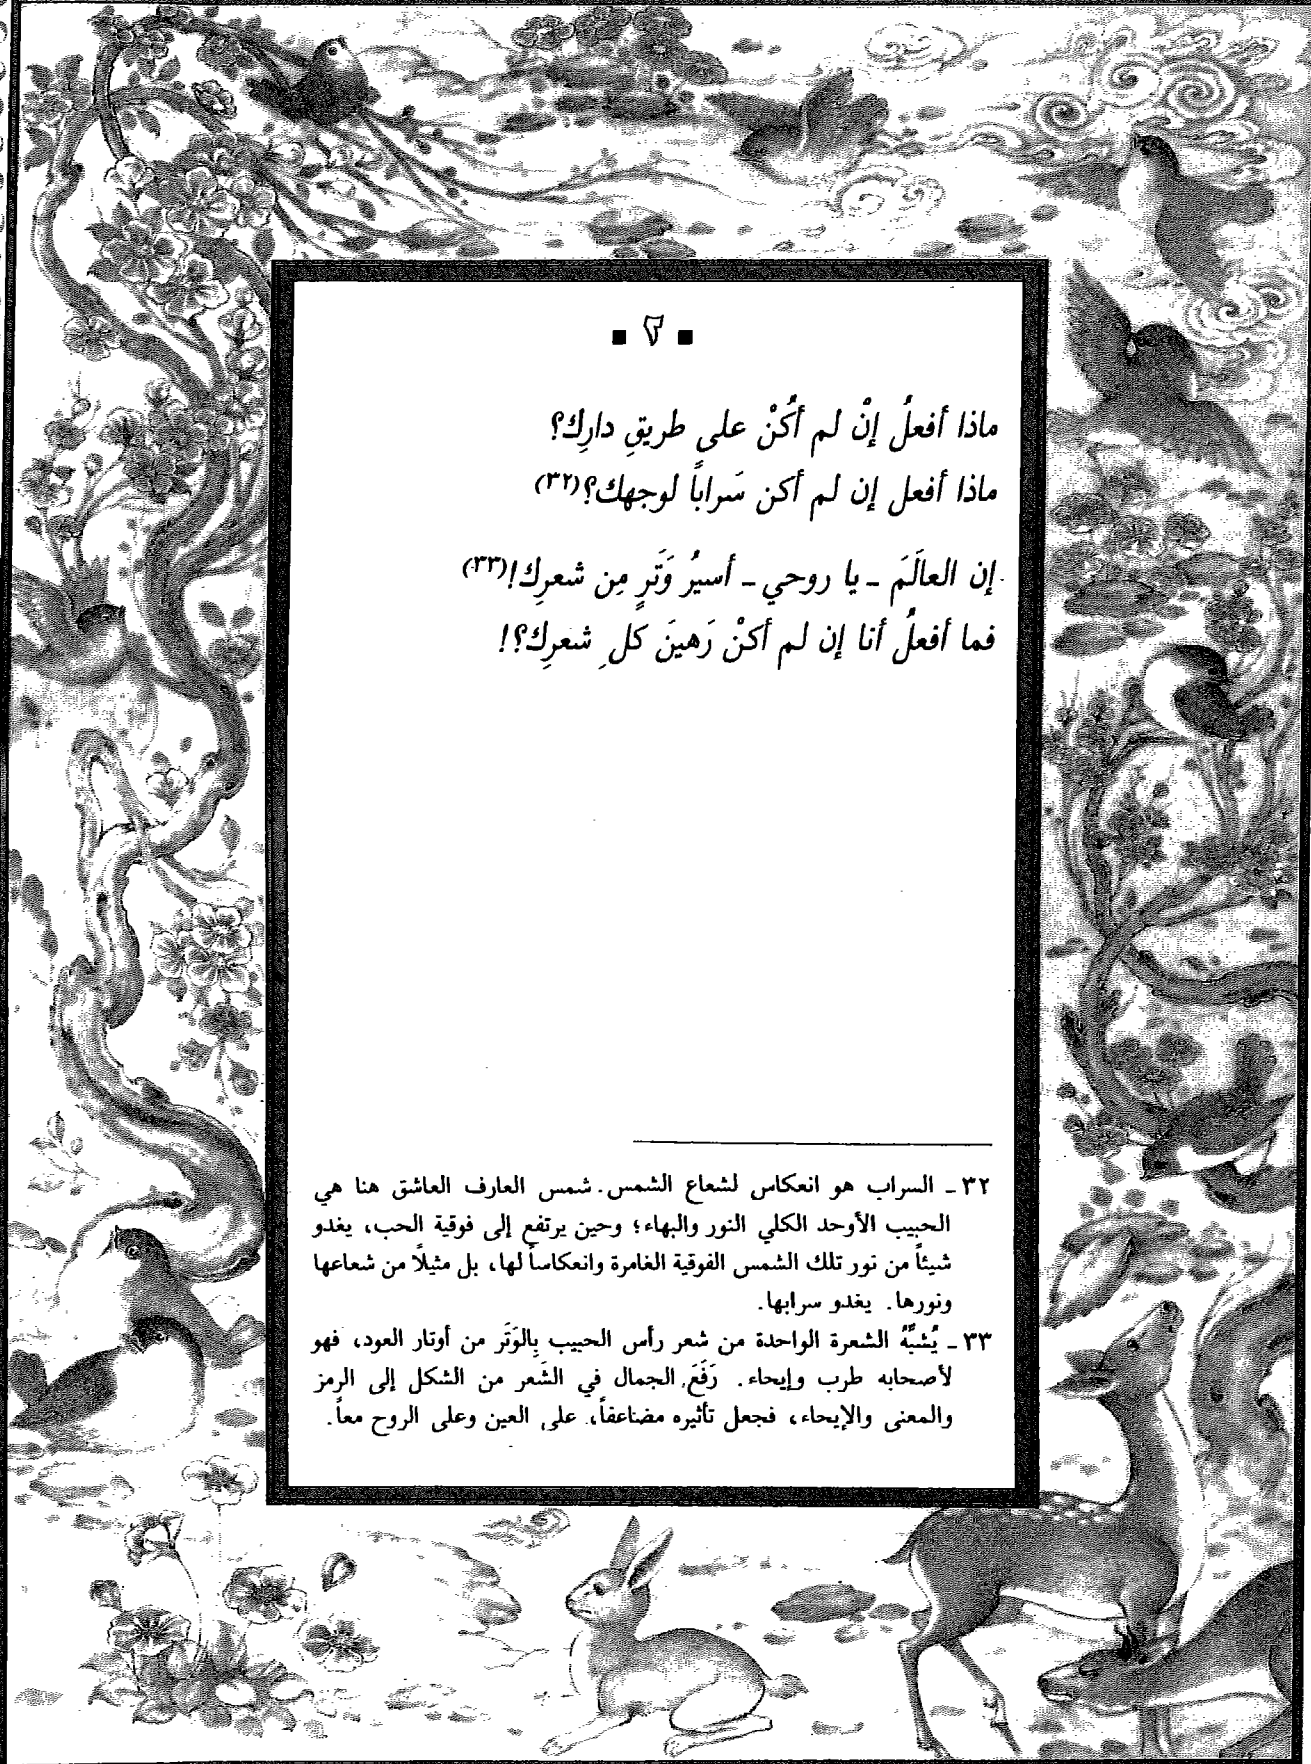 ▪ ٢ ▪
ماذا أفعلُ إنْ لم أكُنْ على طريقِ دارِك؟
ماذا أفعل إن لم أكن سَراباً لوجهك؟(٣٢)
إن العالَمَ ـ يا روحي ـ أسيرُ وَتَرٍ مِن شعرِك!(٣٣)
فما أفعلُ أنا إن لم أكنْ رَهينَ كلِ شعرِك؟!
٣٢ ـ السراب هو انعكاس لشعاع الشمس. شمس العارف العاشق هنا هي
الحبيب الأوحد الكلي النور والبهاء؛ وحين يرتفع إلى فوقية الحب، يغدو
شيئاً من نور تلك الشمس الفوقية الغامرة وانعكاساً لها، بل مثيلاً من شعاعها
ونورها. يغدو سرابها.
٣٣ ـ يُشبِّهُ الشعرة الواحدة من شعر رأس الحبيب بِالوَتَر من أوتار العود، فهو
لأصحابه طرب وإيحاء. رَفَعَ الجمال في الشَعر من الشكل إلى الرمز
والمعنى والإيحاء، فجعل تأثيره مضاعفاً، على العين وعلى الروح معاً.